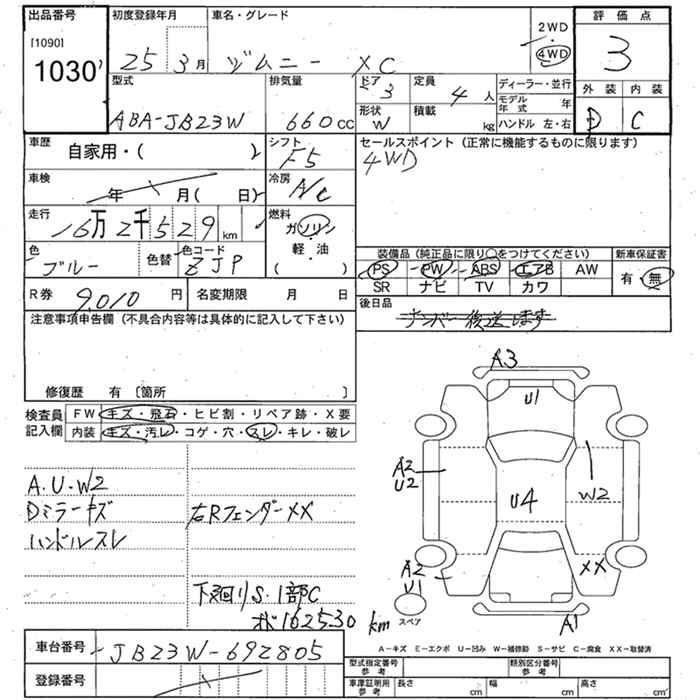 出品番号
[1090]
1030
初度登録年月
25 3月
車名・グレード
ジムニー XC
2WD
・
4WD
評価点
3
外装 内装
D C
型式
ABA-JB23W
排気量
660cc
ドア
3
定員
4人
形状
W
積載
kg
ディーラー・並行
モデル年式 年
ハンドル 左・右
車歴
自家用・( )
シフト
F5
セールスポイント (正常に機能するものに限ります)
4WD
車検
年 月( 日)
冷房
A/C
走行
16万2千529km
燃料
ガソリン
・
軽・油
( )
色
ブルー
色替
色コード
ZJP
装備品(純正品に限り○をつけてください)
PS PW ABS エアB AW
SR ナビ TV カワ
新車保証書
有・無
R券 9,010円
名変期限 月 日
後日品
ナンバー後送します
注意事項申告欄(不具合内容等は具体的に記入して下さい)
修復歴 有〔箇所 〕
検査員記入欄
FW キズ・飛石・ヒビ割・リペア跡・X要
内装 キズ・汚レ・コゲ・穴・スレ・キレ・破レ
A.U.W2
Dミラーキズ
ハンドルスレ
右RフェンダーXX
下廻りS.1部C
オド162530km
A3
U1
A2
U2
U4
W2
A2
U1
XX
A1
スペア
A-キズ E-エクボ U-凹み W-補修跡 S-サビ C-腐食 XX-取替済
車台番号
JB23W-692805
登録番号
型式指定番号
参考
類別区分番号
参考
車庫証明用
参考
長さ cm
幅 cm
高さ cm